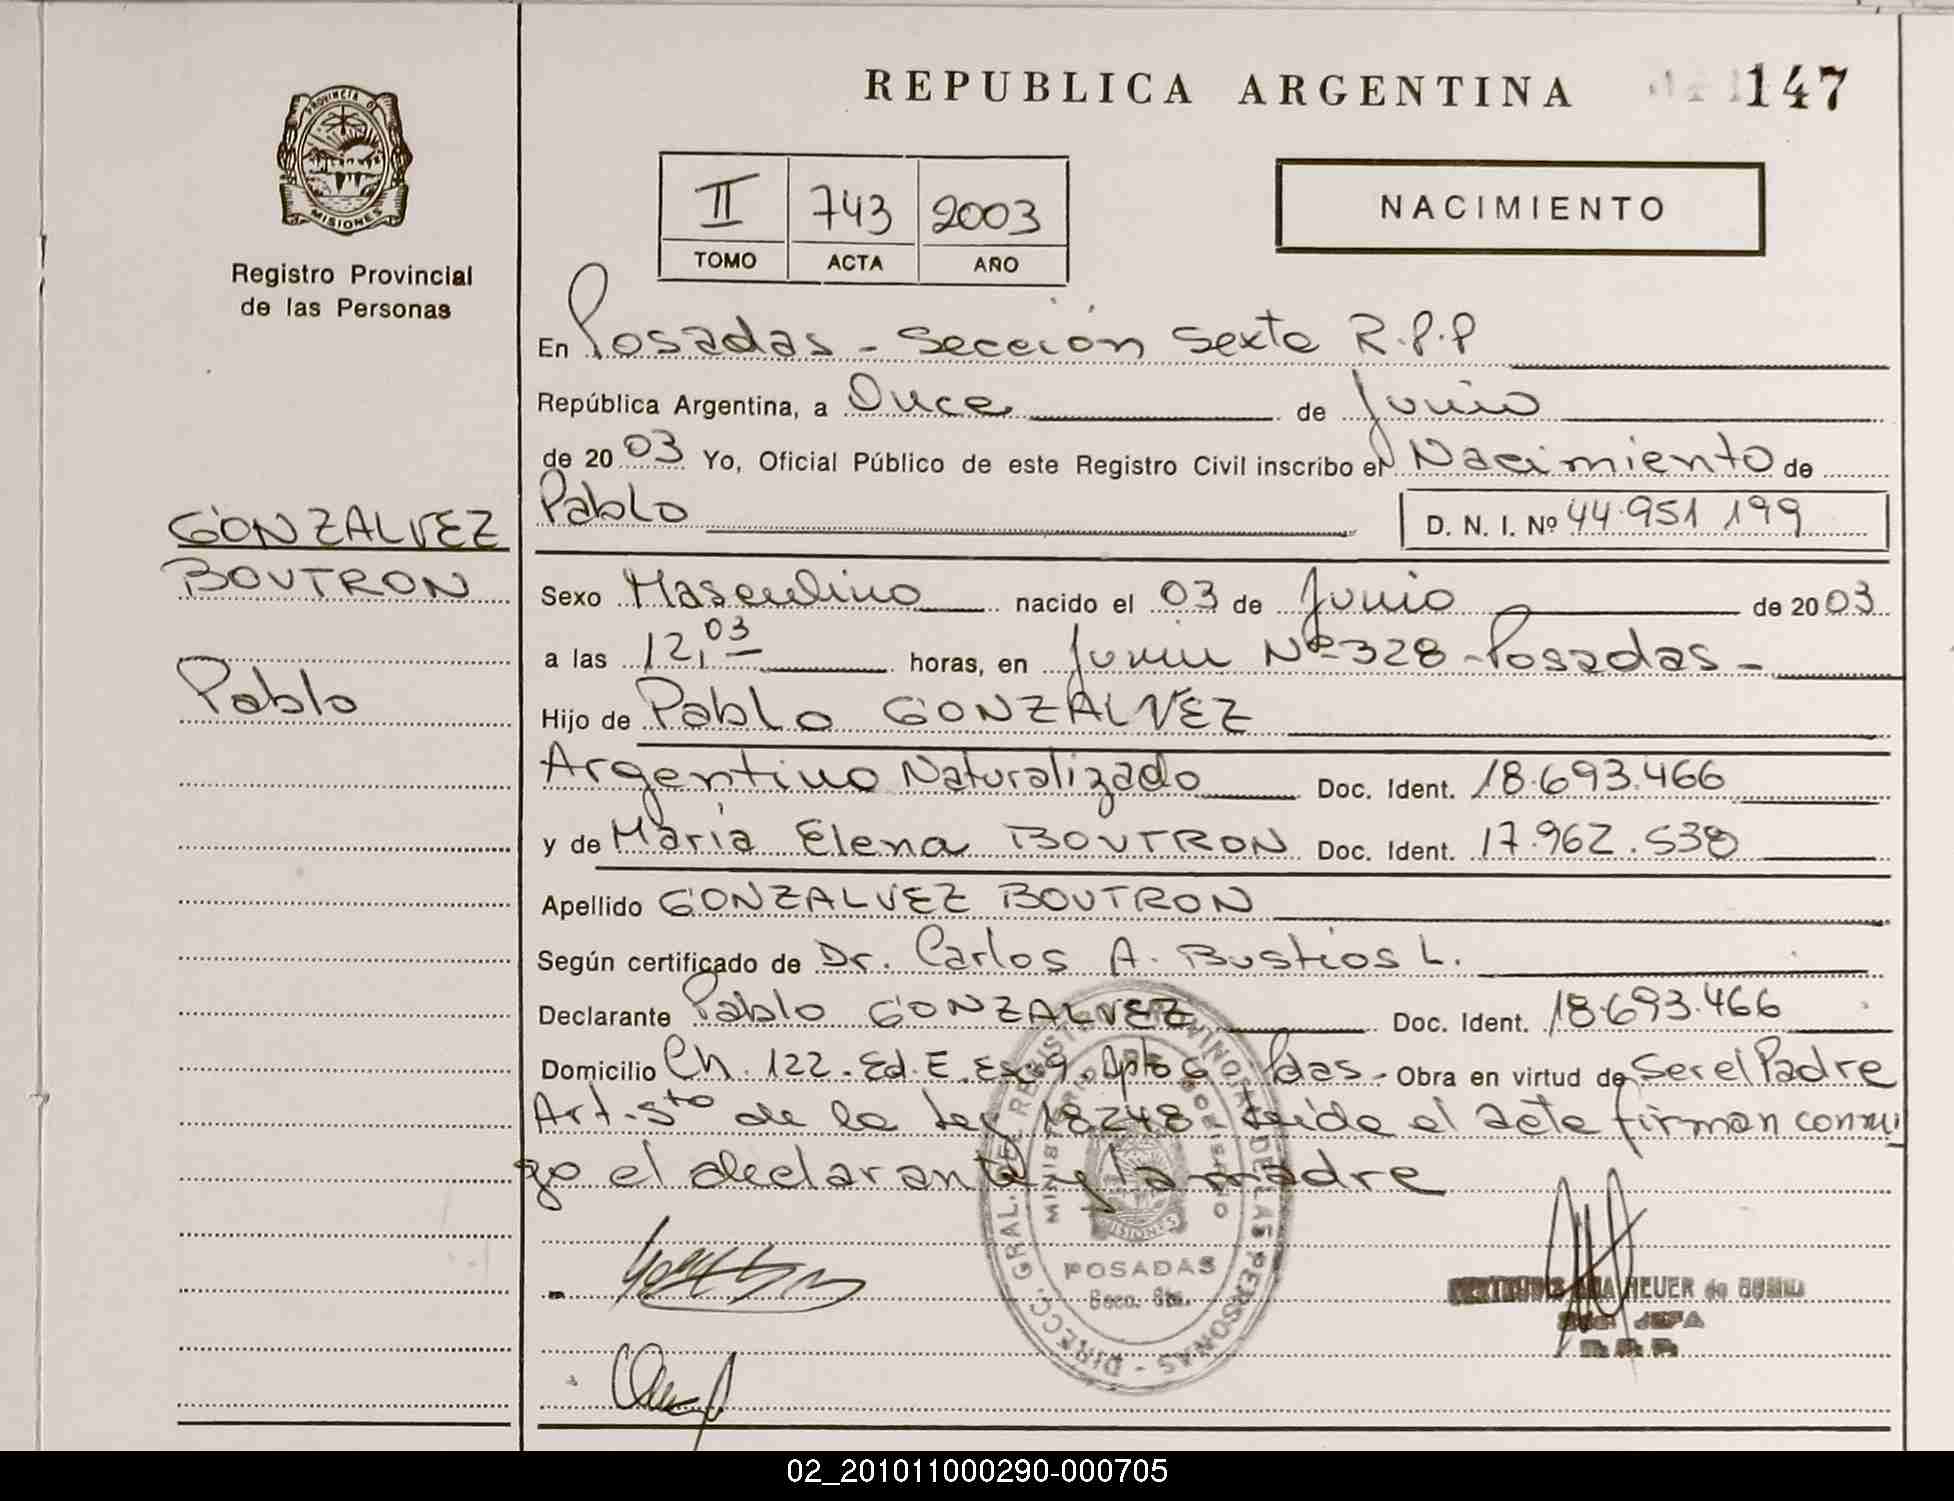 REPUBLICA ARGENTINA
147
PROVINCIA D
MISIONES
Registro Provincial
de las Personas
II 743 2003
TOMO ACTA AÑO
NACIMIENTO
En Posadas - Sección Sexta R.P.P
República Argentina, a Once de Junio
de 2003 Yo, Oficial Público de este Registro Civil inscribo el Nacimiento de
Pablo
D. N. I. Nº 44.951 199
GONZALVEZ
BOUTRON
Pablo
Sexo Masculino nacido el 03 de Junio de 2003
a las 12,03 horas, en Junin Nº 328 - Posadas -
Hijo de Pablo GONZALVEZ
Argentino Naturalizado Doc. Ident. 18.693.466
y de María Elena BOUTRON Doc. Ident. 17.962.538
Apellido GONZALVEZ BOUTRON
Según certificado de Dr. Carlos A. Bustios L.
Declarante Pablo GONZALVEZ Doc. Ident. 18.693.466
Domicilio Ch. 122. Ed. E. Esc 9. Dpto 6 Pdas - Obra en virtud de Ser el Padre
Art. 5to de la Ley 18248 leida el acta firman conmi
go el declarante y la madre
DIRECC. GRAL. DE REGISTRO PROVINCIAL DE LAS PERSONAS -
MISIONES
POSADAS
Secc. 6ta.
HEUER de
JEFA
R.P.P.
02_201011000290-000705